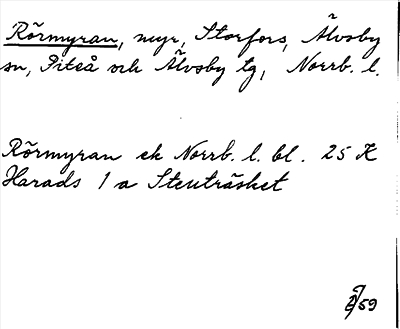 Rörmyran, myr, Storfors, Älvsby
sn, Piteå och Älvsby tg, Norrb. l.
Rörmyran ek Norrb. l. bl. 25 K
Harads 1 a Stenträsket
59